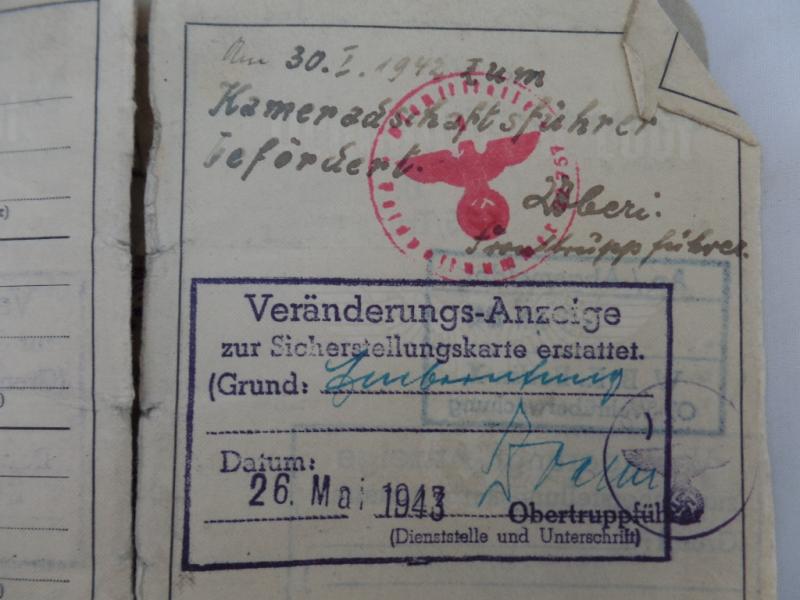 Am 30.I.1942 zum
Kameradschaftsführer
befördert.
Fronttruppführer.
Feldpostnummer
Veränderungs-Anzeige
zur Sicherstellungskarte erstattet.
(Grund: Einberufung
)
Datum:
26. Mai 1943
Obertruppführer
(Dienststelle und Unterschrift)